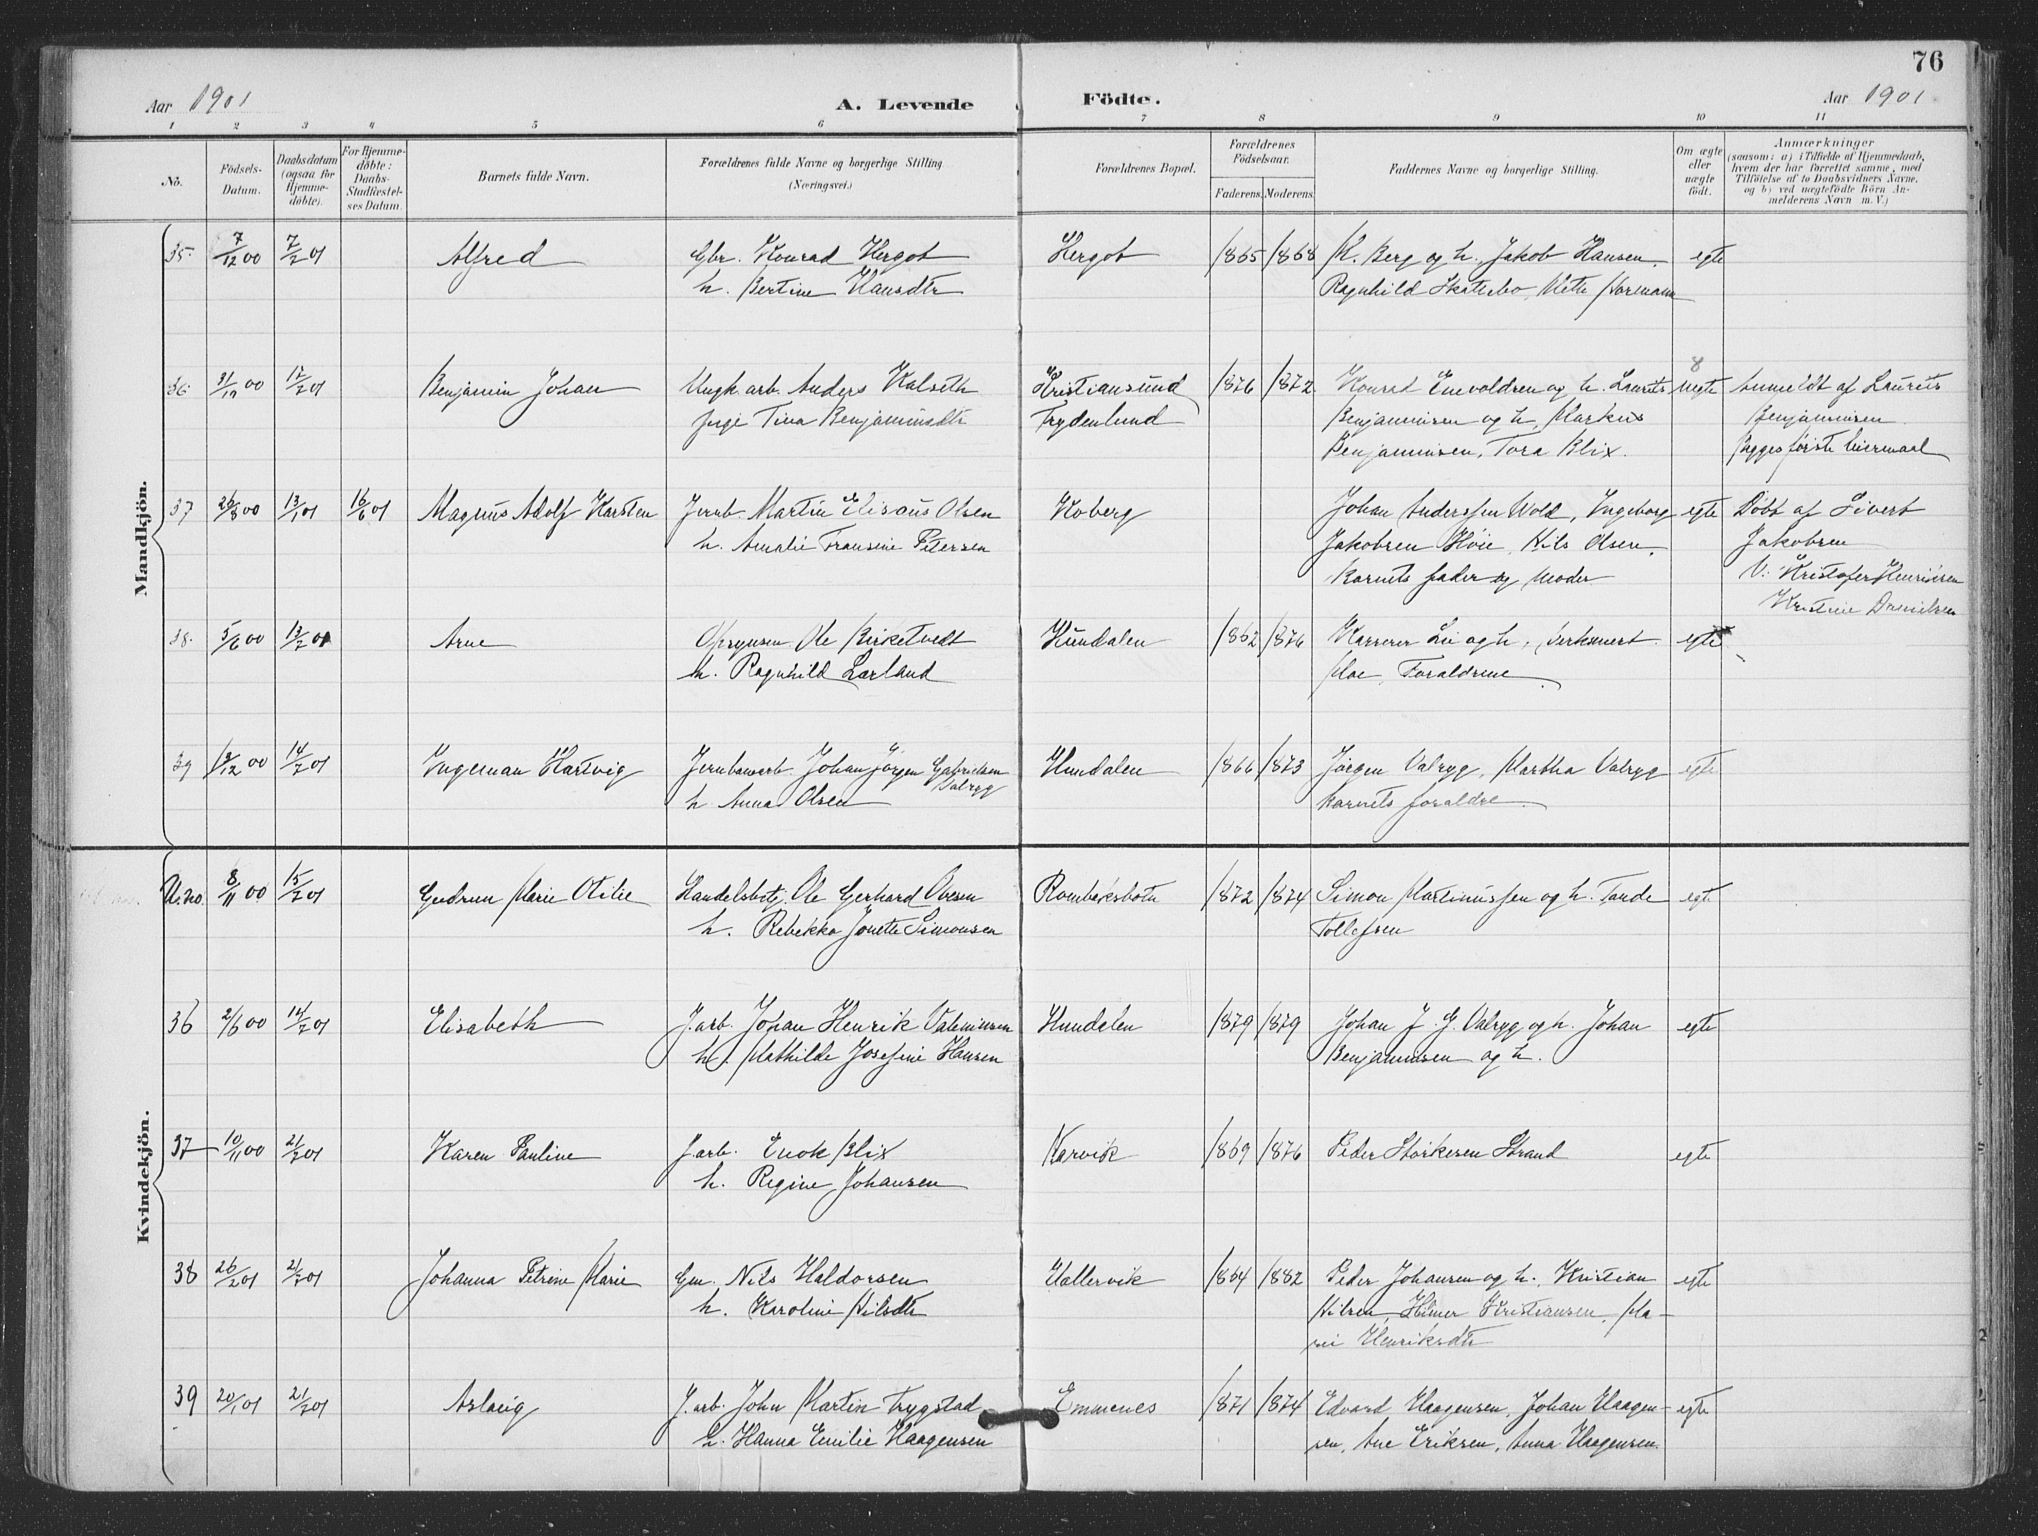 76
Aar 1901 A. Levende Födte. Aar 1901
1 2 3 4 5 6 7 8 9 10 11
No.
Födsels-
Datum.
Daabsdatum
(ogsaa for
Hjemme-
döbte).
For Hjemme-
döbte:
Daabs-
Stadfæstel-
ses Datum.
Barnets fulde Navn.
Forældrenes fulde Navne og borgerlige Stilling
(Næringsvei.)
Forældrenes Bopæl.
Forældrenes
Födselsaar.
Faderens. Moderens.
Faddernes Navne og borgerlige Stilling.
Om ægte
eller
uægte
födt.
Anmærkninger
(saasom: a) i Tilfælde af Hjemmedaab,
hvem der har forrettet samme, med
Tilföielse af to Daabsvidners Navne,
og b) ved uægtefödte Börn An-
melderens Navn m. V.)
Mandkjön.
35 7/12 00 7/2 01 Alfred Gbr. Konrad Hergot Hergot 1865 1868 K. Berg og h. Jakob Hansen egte
h. Bertine Hansdtr Ragnhild
36 31/12 00 17/2 01 Benjamin Johan Ungk. arb. Anders Kalseth Kristiansund 1876 1872 Konrad Enevoldsen og h. Laurits uegte Anmeldt af Laurits
pige Tina Benjaminsdtr Frydenlund Benjaminsen og h, Markus Benjaminsen
Benjaminsen, Tora Blix. Begges første leiermaal
37 26/8 00 13/1 01 16/6 01 Magnus Adolf Karsten Jernb. Martin Elisæus Olsen Koberg Johan Anderssen Wold, Ingeborg egte Döbt af Sivert
h. Amalie Fransine Petersen Jakobsen Höie, Nils Olsen, Jakobsen
barnets fader og moder V: Kristofer Henriksen
Kristine Danielsen
38. 5/6 00 13/2 01 Arne Opsynsm. Ole Birketvedt Hundalen 1862 1876 Karrerer Lie og h, egte
h. Ragnhild Larland Moe, Forældrene
39 12/12 00 14/2 01 Ingeman Hartvig Jernbanearb. Johan Jörgen Gabrielsen Hundalen 1866 1873 Jörgen Valryg, Martha Valryg egte
Valryg
h. Anna Olsen barnets forældre
Kvindekjön.
U.no. 8/11 00 15/2 01 Gudrun Marie Otilie Handelsbetj. Ole Gerhard Olsen Rombaksbotn 1872 1874 Simon Martinussen og h. Tande egte
h. Rebekka Jonette Simonsen Tollefsen
36 2/6 00 14/2 01 Elisabeth J.arb. Johan Henrik Hundalen 1879 1879 Johan J. G. Valryg og h. Johan egte
h. Mathilde Josefine Hansen Benjaminsen og h.
37 10/11 00 21/2 01 Karen Pauline J.arb. Enok Blix Narvik 1869 1876 Peder Storkersen Strand egte
h. Regine Johansen
38 26/2 01 2/7 01 Johanna Petrine Marie Gm. Nils Haldorsen Hallervik 1864 1882 Peder Johansen og h. Kristian egte
h. Karoline Nilsdtr Nilsen, Hilmer Kristiansen, Ma-
rie Henriksdtr
39 20/1 01 21/7 01 Aslaug J.arb. John Martin Trygstad Emmenes 1871 1874 Edvard Haagensen, Johan Haagen- egte
h. Hanna Emilie Haagensen sen, Ane Eriksen, Anna Haagensen.